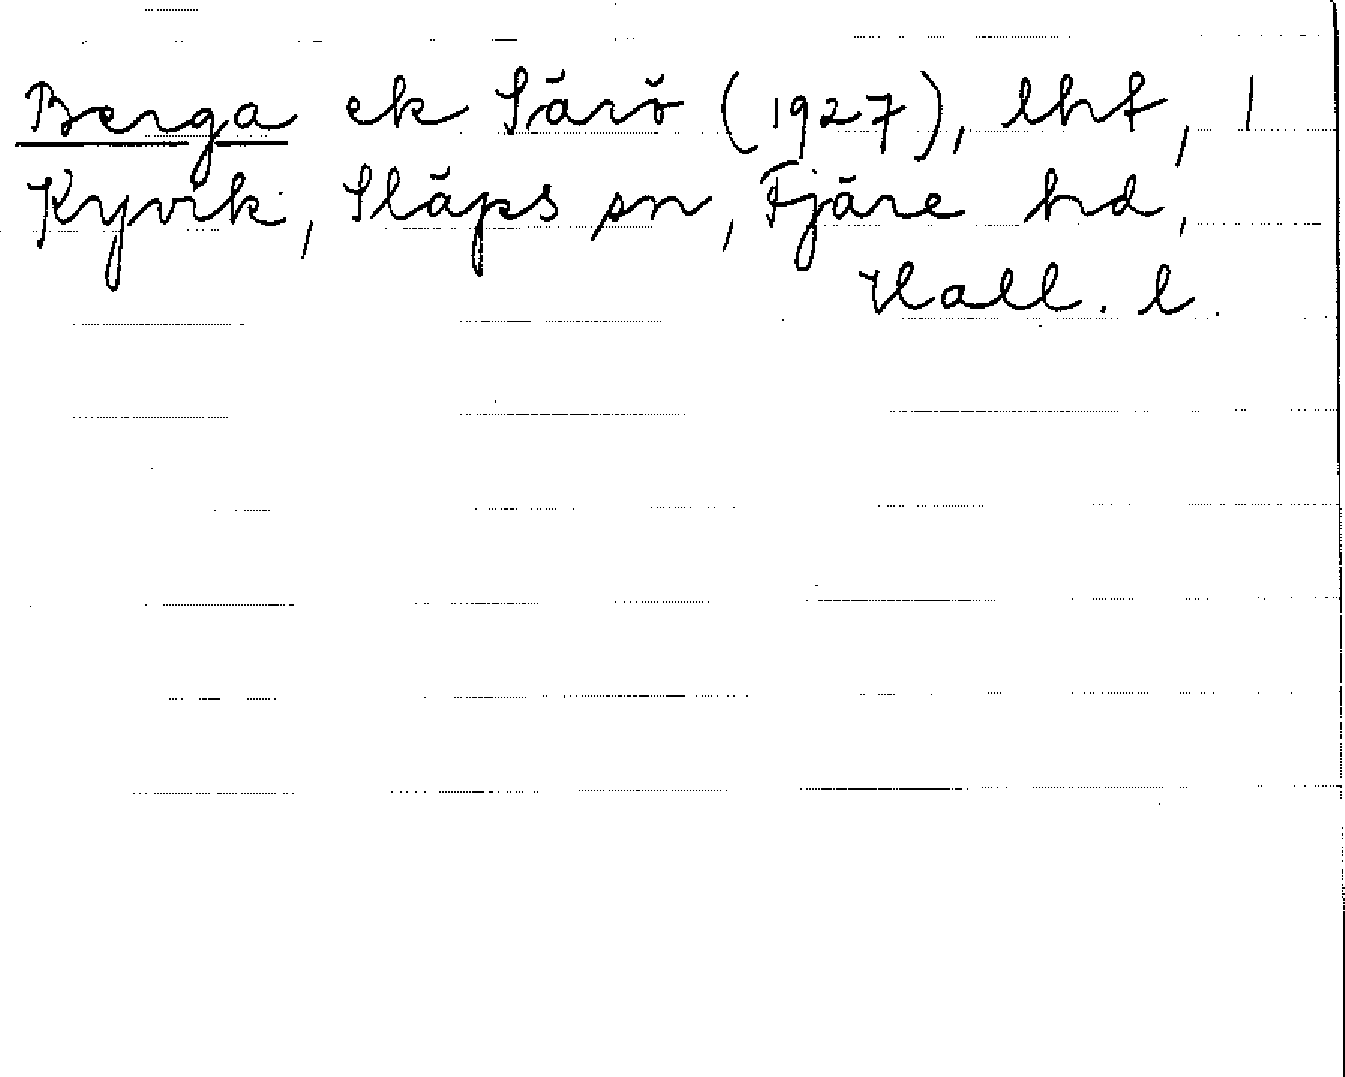 Berga ek Särö (1927), lht, 1
Kyvik, Släps sn, Fjäre hd,
Hall. l.